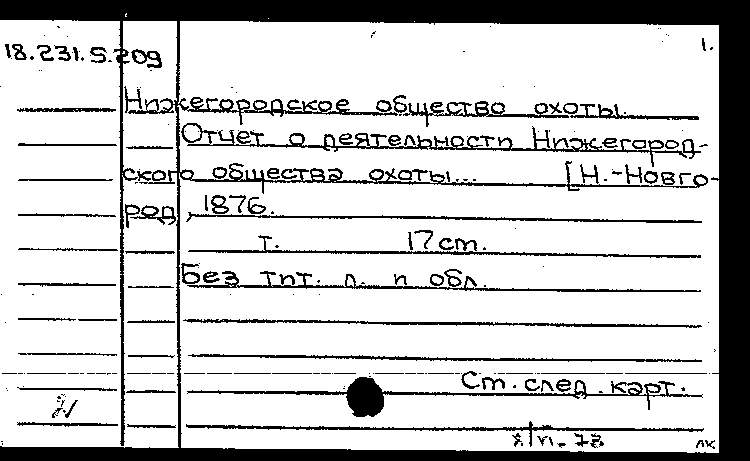 1.
18.231.5.209
Нижегородское общество охоты.
Отчет о деятельности Нижегород-
ского общества охоты... [Н.-Новго-
род, 1876.
т. 17 cm.
Без тит. л. и обл.
Ст. след. карт.
лк